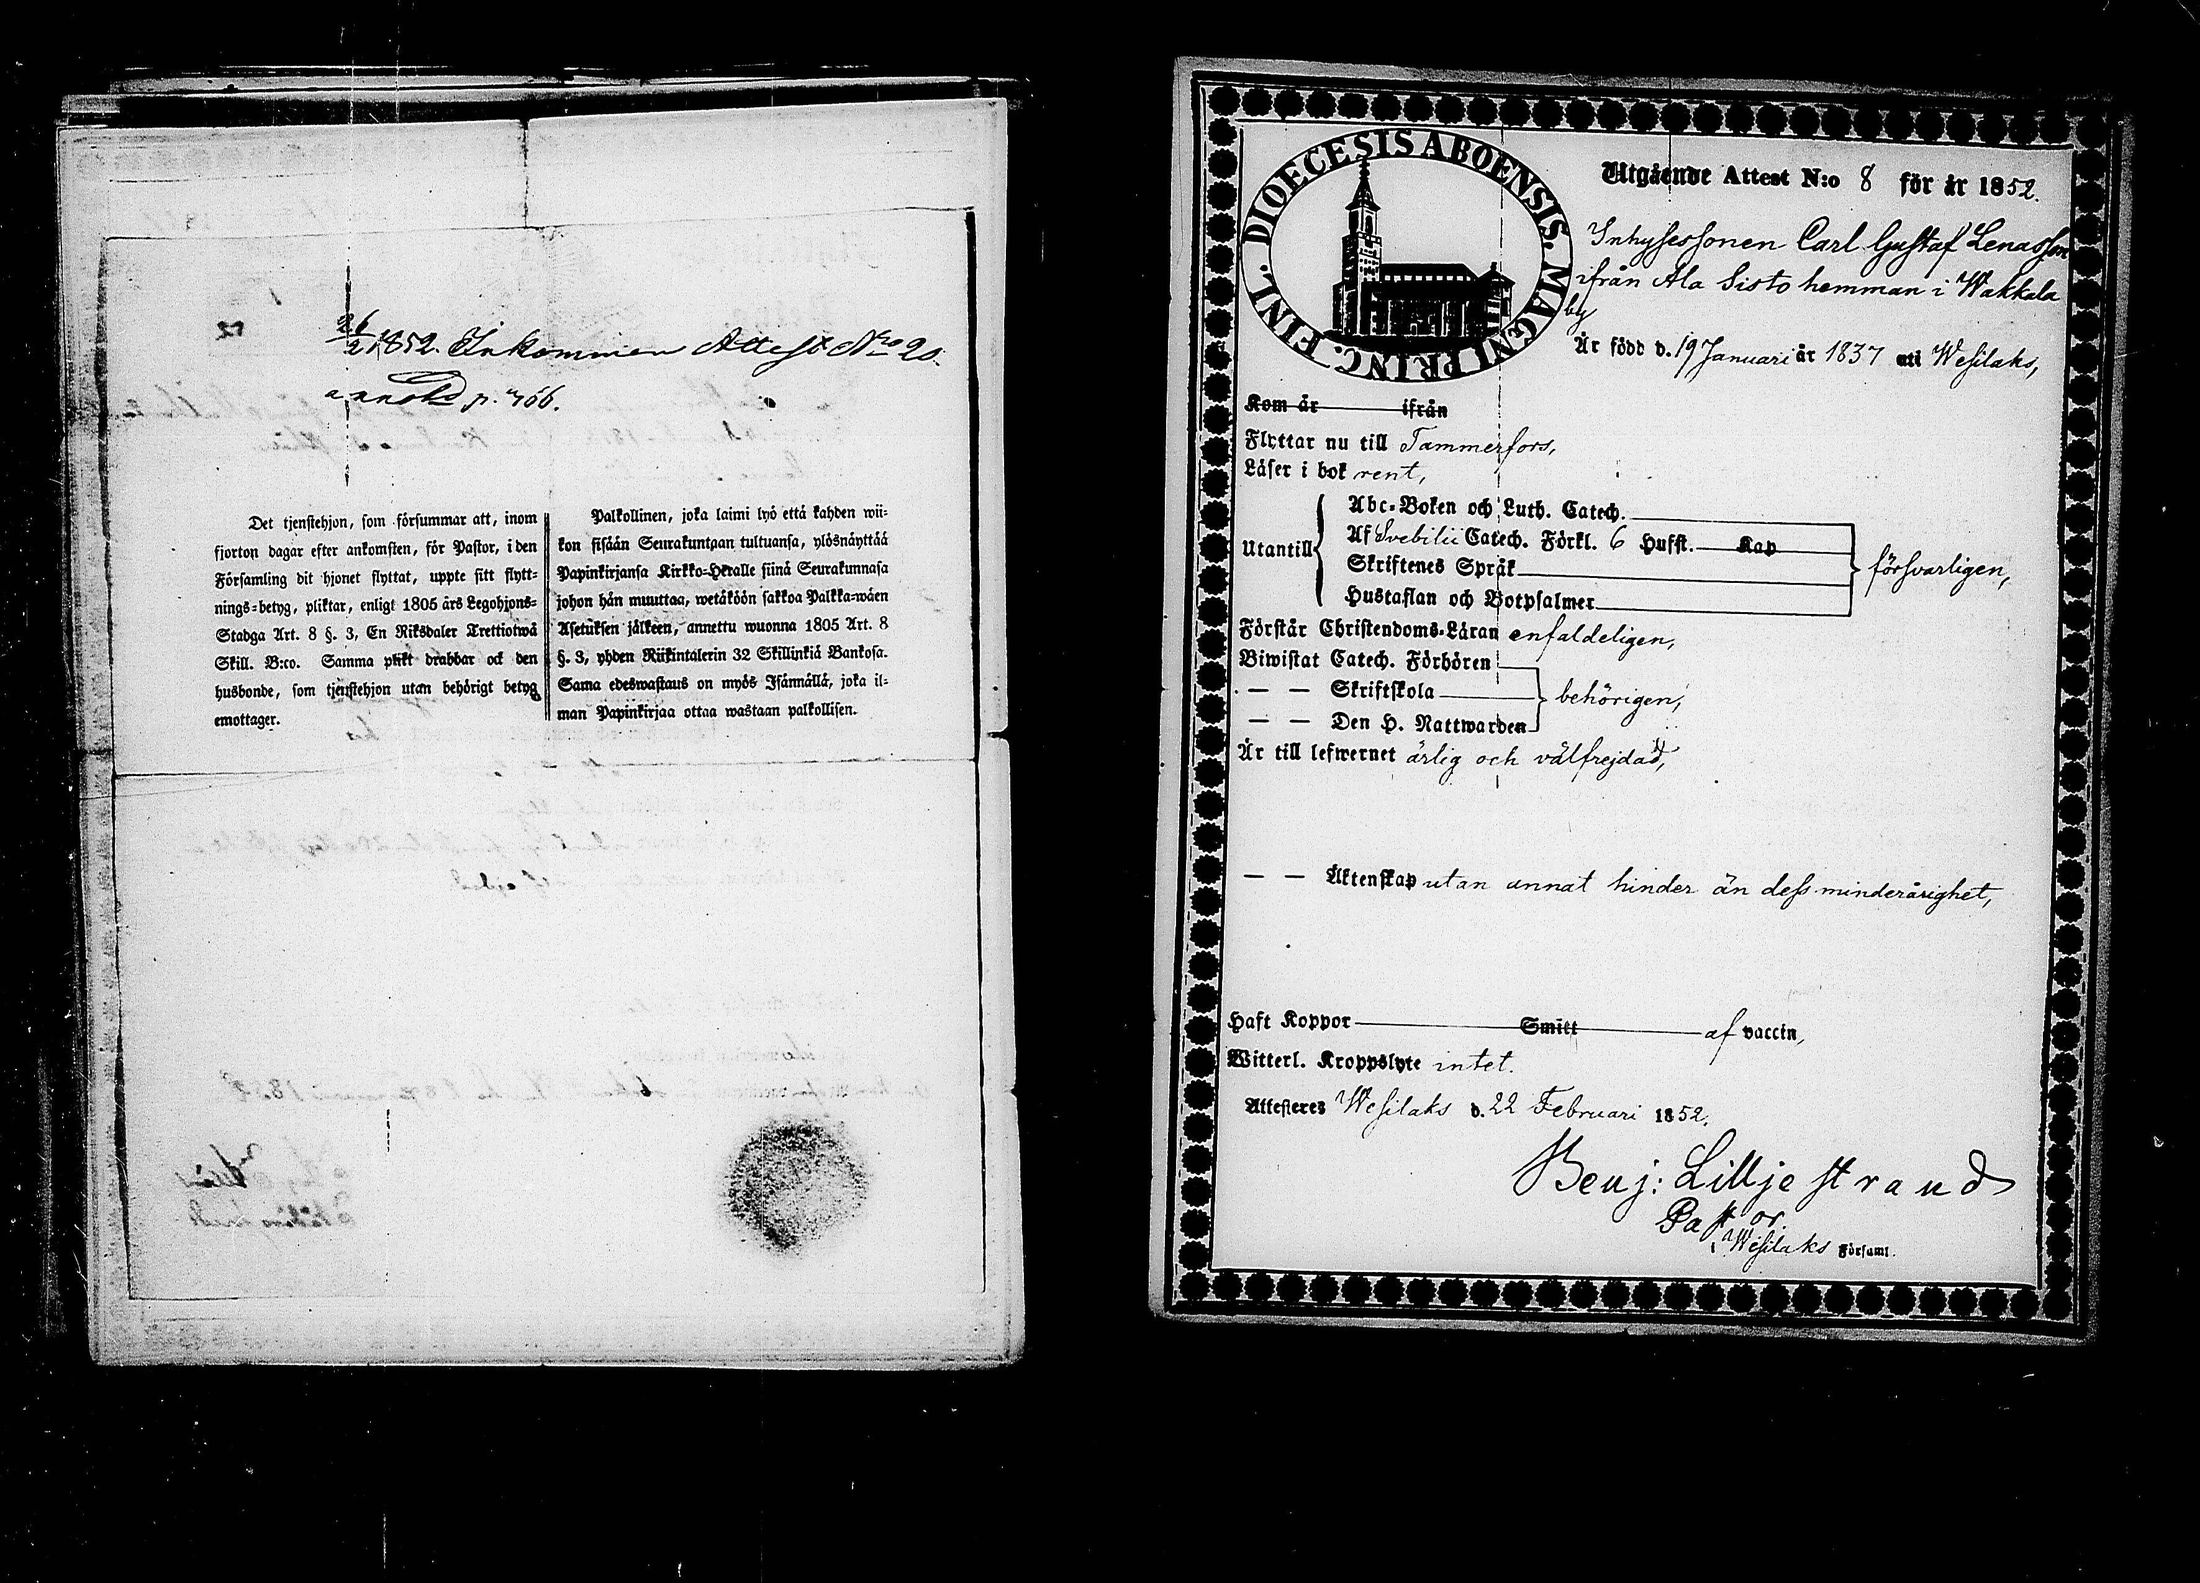 26/2 1852. Inkommen Attest Nro 20.
p. 466.
Det tjenstehjon, som försummar att, inom
fjorton dagar efter ankomsten, för Pastor, i den
Församling dit hjonet flyttat, uppte sitt flytt-
nings-betyg, pliktar, enligt 1805 års Legohjons-
Stadga Art. 8 §. 3, En Riksdaler Trettiotwå
Skill. B:co. Samma plikt drabbar ock den
husbonde, som tjenstehjon utan behörigt betyg
emottager.
Palkollinen, joka laimi lyö että kahden wii-
kon sisään Seurakuntaan tultuansa, ylösnäyttää
Papinkirjansa Kirkko-Herralle siinä Seurakunnasa
johon hän muuttaa, wetäköön sakkoa Palkka-wäen
Asetuksen jälkeen, annettu wuonna 1805 Art. 8
§. 3, yhden Riikintalerin 32 Skillinkiä Bankosa.
Sama edeswastaus on myös Isännällä, joka il-
man Papinkirjaa ottaa wastaan palkollisen.
DIOECESIS ABOENSIS. MAGNI PRINC. FINL.
Utgående Attest N:o 8 för år 1852.
Inhysessonen Carl Gustaf Lenasson
ifrån Ala Sisto hemman i Wakkala
by
Är född d. 19 Januari år 1837 uti Wesilaks,
Kom år ifrån
Flyttar nu till Tammerfors,
Läser i bok rent,
Utantill
Abc-Boken och Luth. Catech.
Af Svebilii Catech. Förkl. 6 Hufst. Kap
Skriftenes Språk
Hustaflan och Botpsalmer
försvarligen,
Förstår Christendoms-Läran enfaldeligen,
Biwistat Catech. Förhören
— — Skriftskola
— — Den H. Nattwarden
behörigen,
Är till lefwernet ärlig och välfrejdad,
— — Äktenskap utan annat hinder än dess minderårighet,
Haft Koppor Smitt af vaccin,
Witterl. Kroppslyte intet.
Attesteres Wesilaks d. 22 Februari 1852.
Benj: Lilljestrand
Pastor
i Wesilaks Församl.